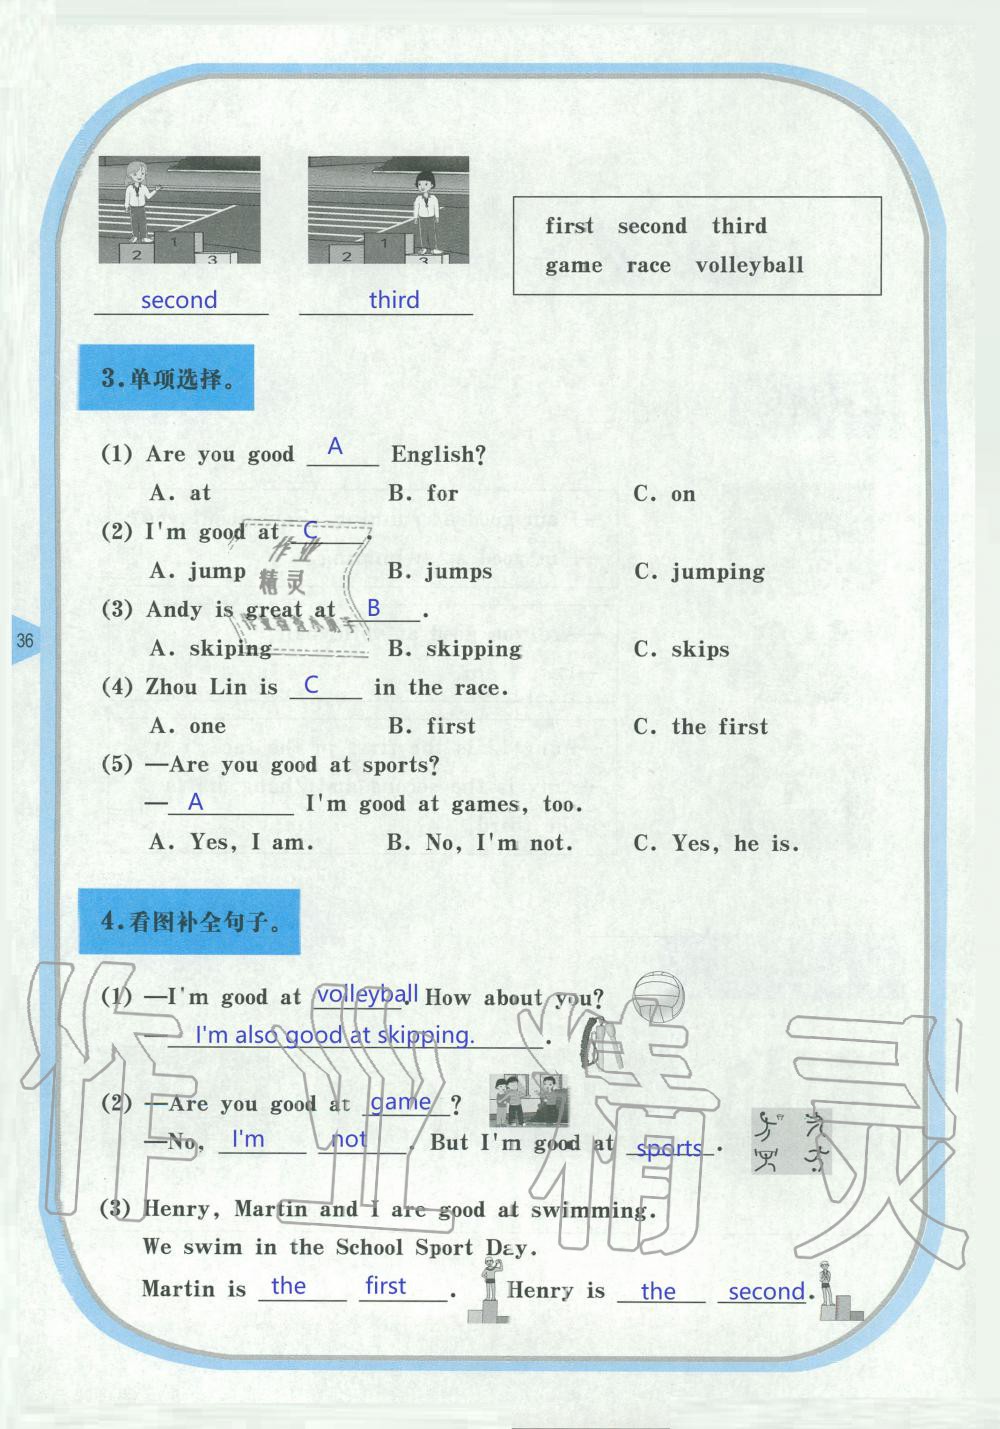 first second third
game race volleyball
2 1 3
2 1 3
second third
3.单项选择。
(1) Are you good A English?
A. at B. for C. on
(2) I'm good at C.
A. jump B. jumps C. jumping
(3) Andy is great at B.
A. skiping B. skipping C. skips
(4) Zhou Lin is C in the race.
A. one B. first C. the first
(5) —Are you good at sports?
—A I'm good at games, too.
A. Yes, I am. B. No, I'm not. C. Yes, he is.
36
4.看图补全句子。
(1) —I'm good at volleyball. How about you?
—I'm also good at skipping..
(2) —Are you good at game?
—No, I'm not. But I'm good at sports.
(3) Henry, Martin and I are good at swimming.
We swim in the School Sport Day.
Martin is the first. Henry is the second.
作业精灵
作业
精灵